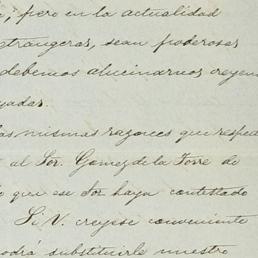 , pero en la actualidad
strangeras, sean poderosas
debemos alucinarnos creyen
yadas.
las mismas razones que respec
al Sor. Gomez de la Torre de
que ese Sor haya contestado
Si V. creyese conveniente
podrá substituirle nuestro